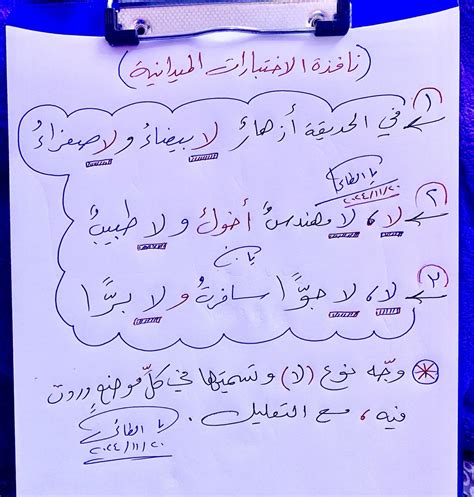 (نافذة الاختبارات الميدانية)
١) في الحديقة أزهارٌ لا بيضاءُ ولا صفراءُ
٢٠٢٤/١١/٢٠
٢) لا، لا مهندسٌ أخوك ولا طبيبٌ
٣) لا، لا جوًّا سافرتُ ولا برًّا
* وجّه نوع (لا) وتسميتها في كلّ موضع وردت
فيه، مع التعليل.
٢٠٢٤/١١/٢٠